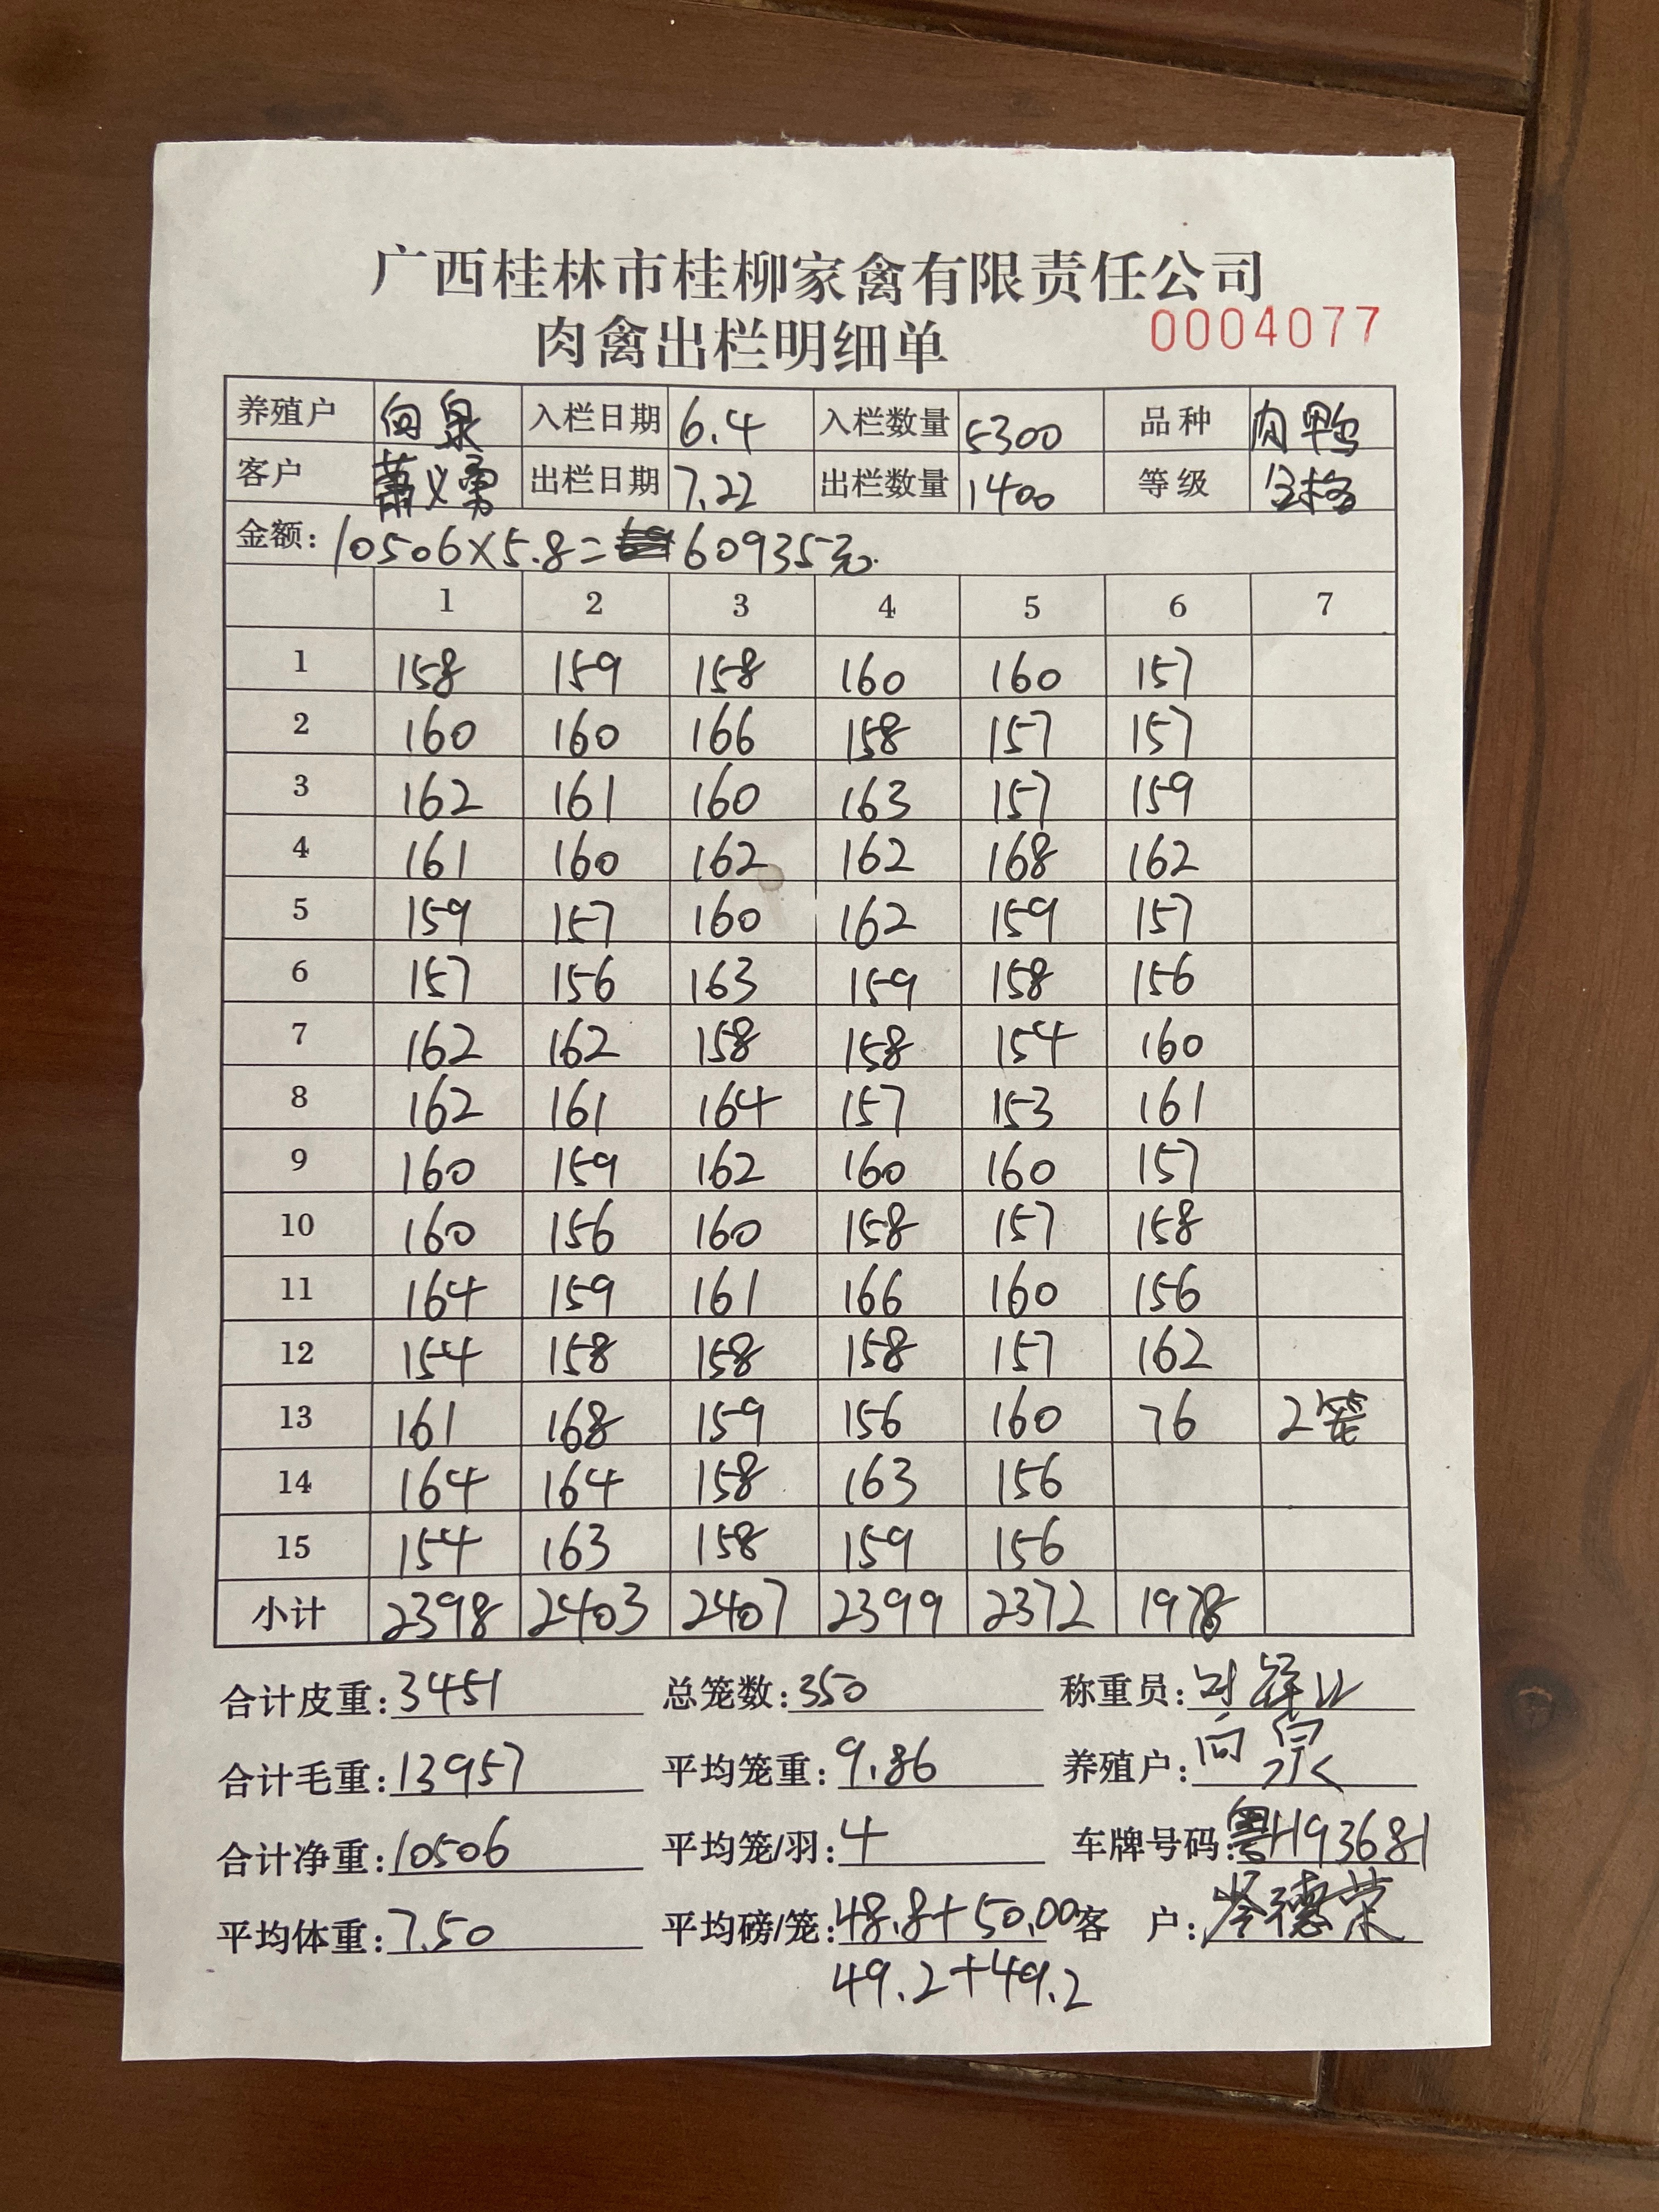 广西桂林市桂柳家禽有限责任公司
肉禽出栏明细单 0004077
养殖户 向泉 入栏日期 6.4 入栏数量 5300 品种 肉鸭
客户 萧义勇 出栏日期 7.22 出栏数量 1400 等级 合格
金额: 10506×5.8= 60935元.
1 2 3 4 5 6 7
1 158 159 158 160 160 157
2 160 160 166 158 157 157
3 162 161 160 163 157 159
4 161 160 162 162 168 162
5 159 157 160 162 159 157
6 157 156 163 159 158 156
7 162 162 158 158 154 160
8 162 161 164 157 153 161
9 160 159 162 160 160 157
10 160 156 160 158 157 158
11 164 159 161 166 160 156
12 154 158 158 158 157 162
13 161 168 159 156 160 76 2笼
14 164 164 158 163 156
15 154 163 158 159 156
小计 2398 2403 2407 2399 2372 1978
合计皮重: 3451 总笼数: 350 称重员:
合计毛重: 13957 平均笼重: 9.86 养殖户: 向泉
合计净重: 10506 平均笼/羽: 4 车牌号码: 粤H93681
平均体重: 7.50 平均磅/笼: 48.8+50.00 客 户: 岑德荣
49.2+49.2